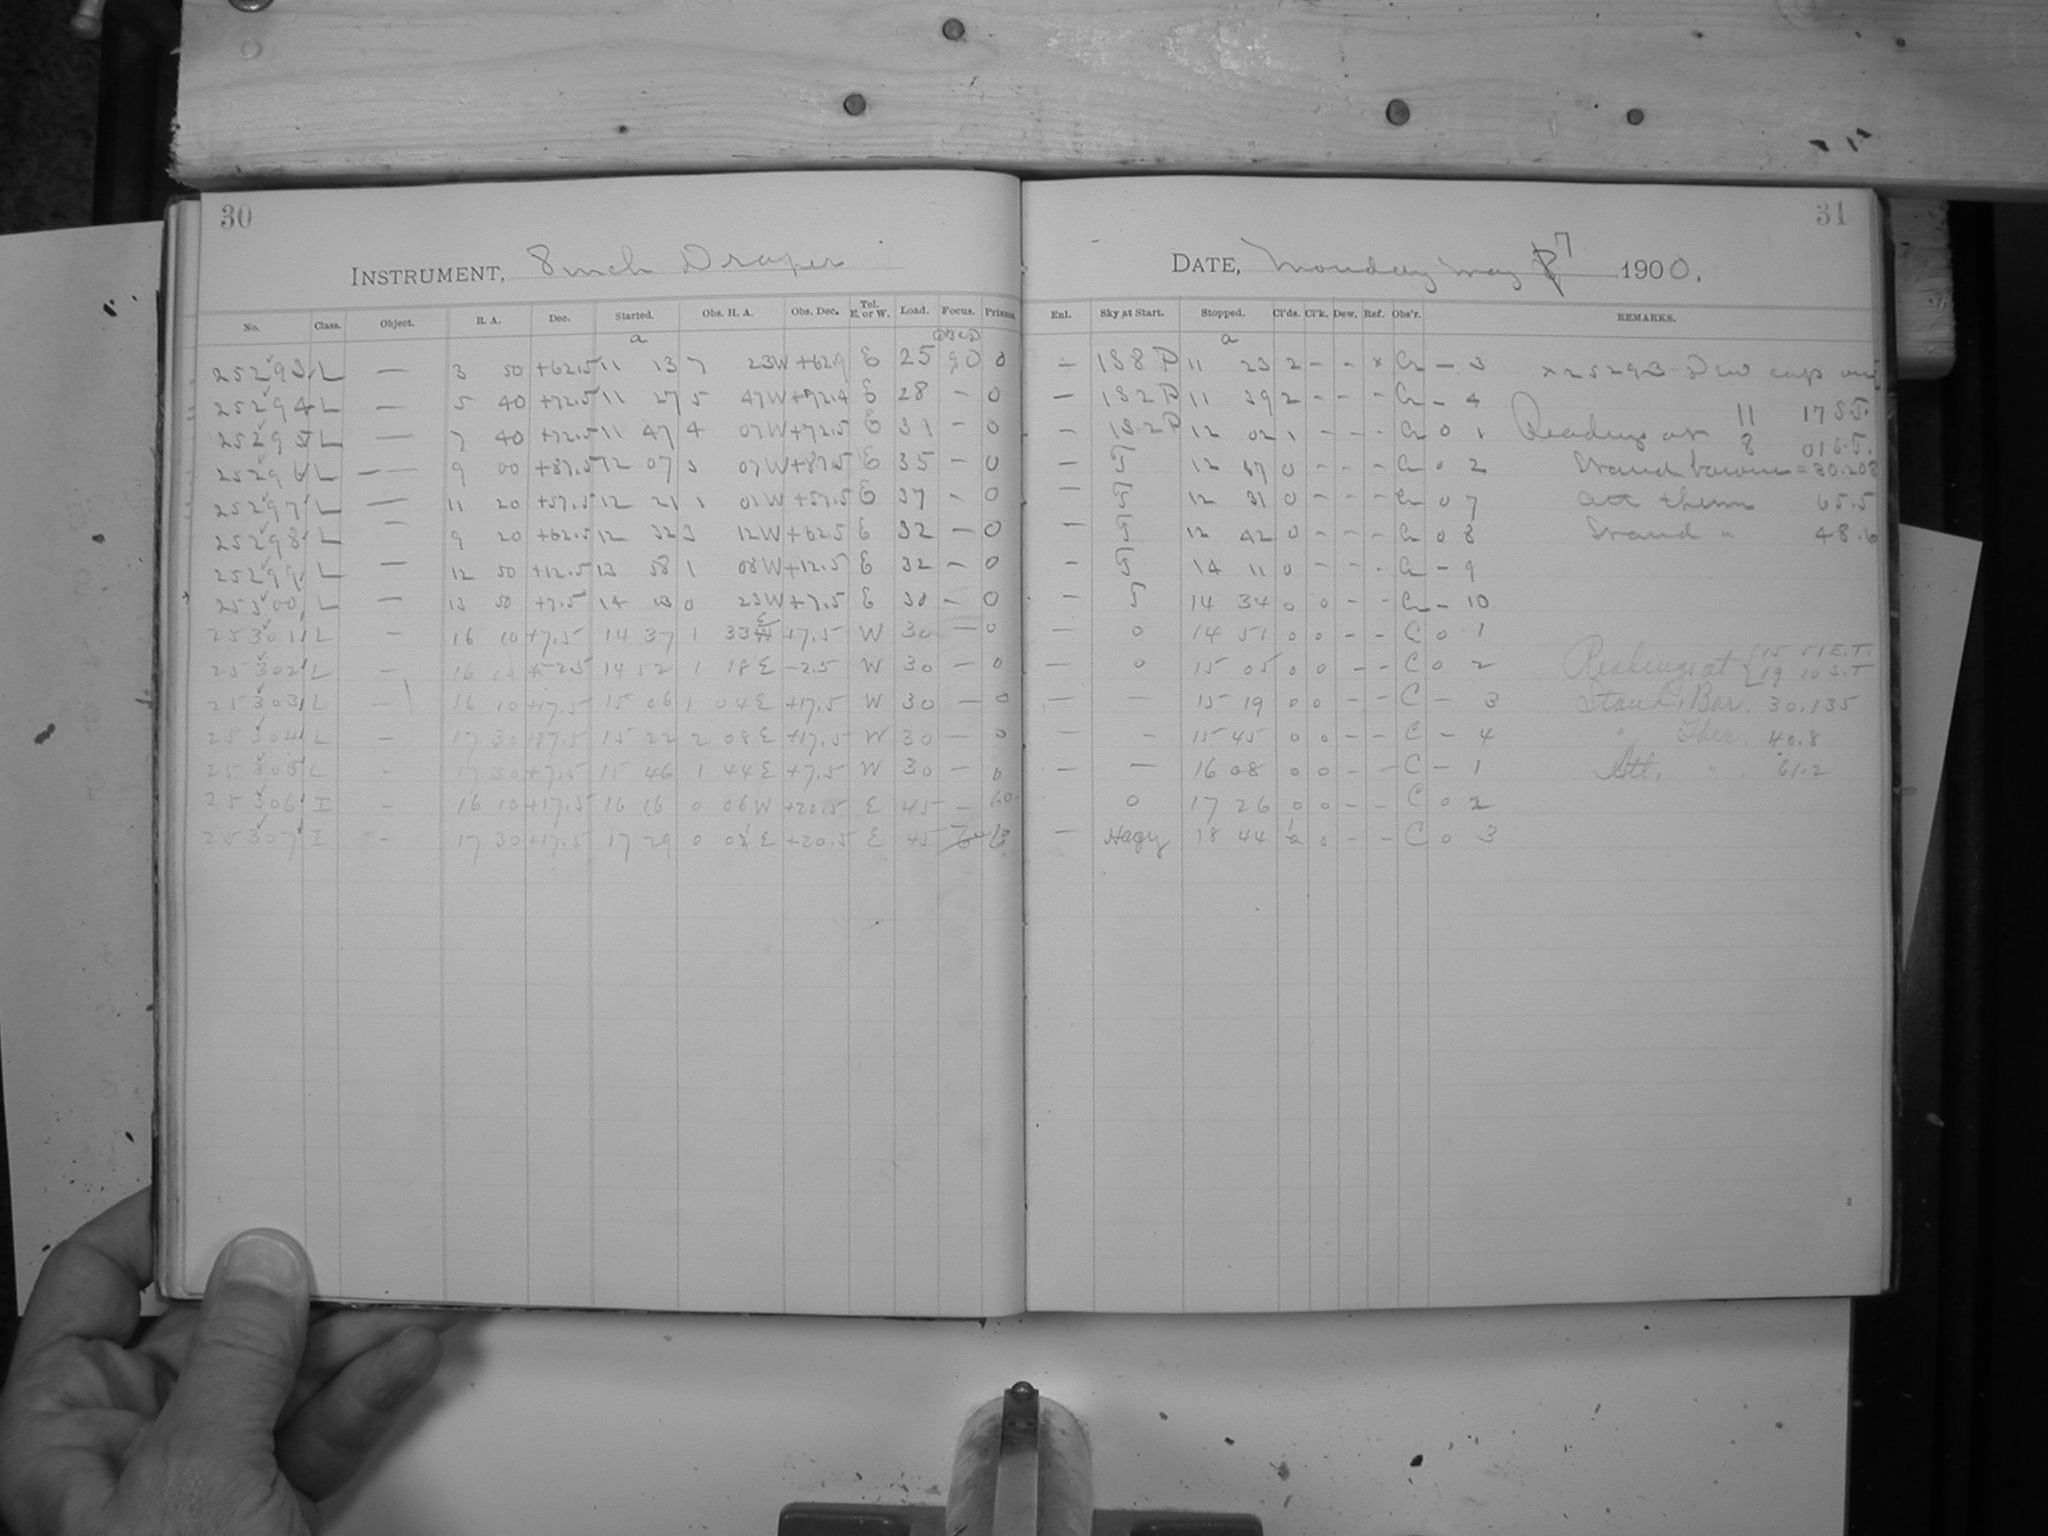 30
31
INSTRUMENT, 8 inch Draper
DATE, Monday May 7 1900.
No. Class. Object. R. A. Dec. Started. Obs. H. A. Obs. Dec. Tel. E. or W. Load. Focus. Prisms. Enl. Sky at Start. Stopped. Cl'ds. Cl'k. Dew. Ref. Obs'r. REMARKS.
a a
25293 L — 3 50 +62.5 11 13 7 23W +62.9 E 25 90 0 — 188 P 11 23 2 - - x Cr - 3 x 25293 Dew cap
25294 L — 5 40 +72.5 11 27 5 47W +72.4 E 28 — 0 — 182 P 11 39 2 - - - Cr - 4
25295 L — 7 40 +72.5 11 47 4 07W +72.5 E 31 — 0 — 182 P 12 02 1 - - - Cr 0 1 Readings at 11 17 S.T.
8 01 E.T.
25296 L — 9 00 +87.5 12 07 3 07W +87.5 E 35 — 0 — T 12 17 0 - - - Cr 0 2 Stand barom = 30.208
25297 L — 11 20 +57.5 12 21 1 01W +57.5 E 37 — 0 — T 12 31 0 - - - Cr 0 7 Att therm 65.5
25298 L — 9 20 +62.5 12 32 3 12W +62.5 E 32 — 0 — T 12 42 0 - - - Cr 0 8 Stand " 48.6
25299 L — 12 50 +12.5 13 58 1 08W +12.5 E 32 — 0 — T 14 11 0 - - - Cr - 9
25300 L — 13 50 +7.5 14 13 0 23W +7.5 E 30 — 0 — T 14 34 0 0 - - Cr - 10
25301 L — 16 10 +7.5 14 37 1 33E +7.5 W 30 — 0 — 0 14 51 0 0 - - C 0 1
25302 L — 16 10 -2.5 14 52 1 18E -2.5 W 30 — 0 — 0 15 05 0 0 - - C 0 2 Readings at 15 51 E.T.
19 10 S.T
25303 L — 16 10 +17.5 15 06 1 04E +17.5 W 30 — 0 — — 15 19 0 0 - - C - 3 Stand. Bar. 30.135
25304 L — 17 30 +17.5 15 22 2 08E +17.5 W 30 — 0 — — 15 45 0 0 - - C - 4 " Ther. 40.8
25305 L — 17 30 +7.5 15 46 1 44E +7.5 W 30 — 0 — — 16 08 0 0 - - C - 1 Att. " 61.2
25306 I — 16 10 +17.5 16 16 0 06W +20.5 E 45 — 60 0 17 26 0 0 - - C 0 2
25307 I — 17 30 +17.5 17 29 0 01E +20.5 E 45 — Hazy 18 44 1 0 - - C 0 3